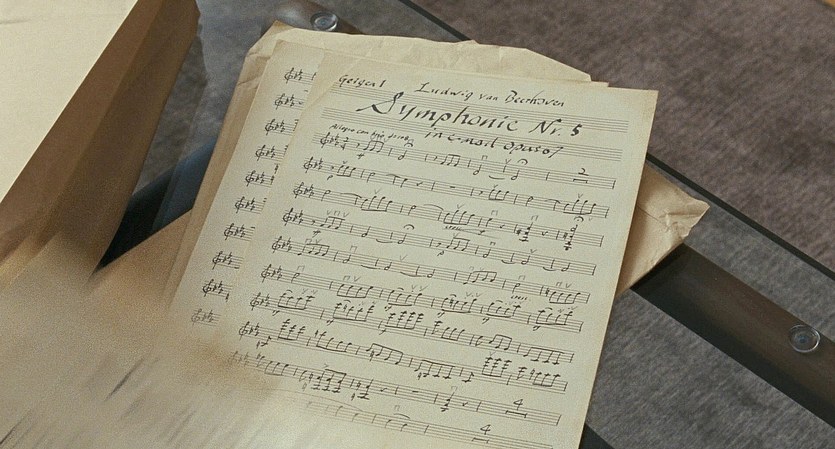 Geigen I
Ludwig van Beethoven
Symphonie Nr. 5
in c-moll opus 67
Allegro con brio
2
4
4